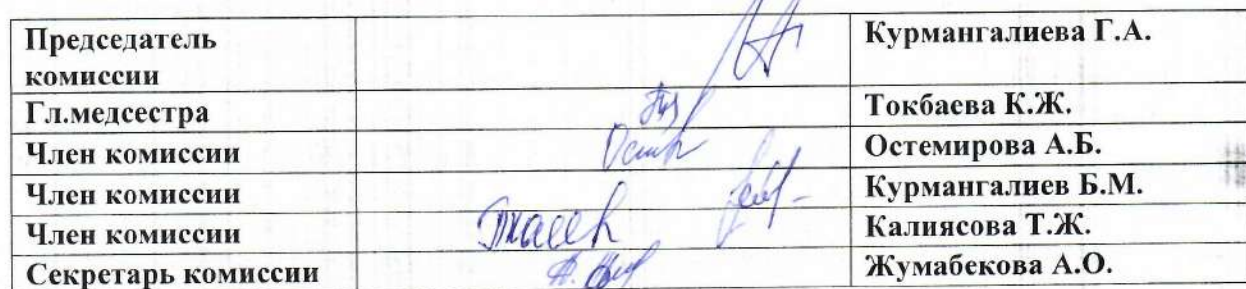 Председатель
комиссии Курмангалиева Г.А.
Гл.медсестра Токбаева К.Ж.
Член комиссии Остемирова А.Б.
Член комиссии Курмангалиев Б.М.
Член комиссии Калиясова Т.Ж.
Секретарь комиссии Жумабекова А.О.